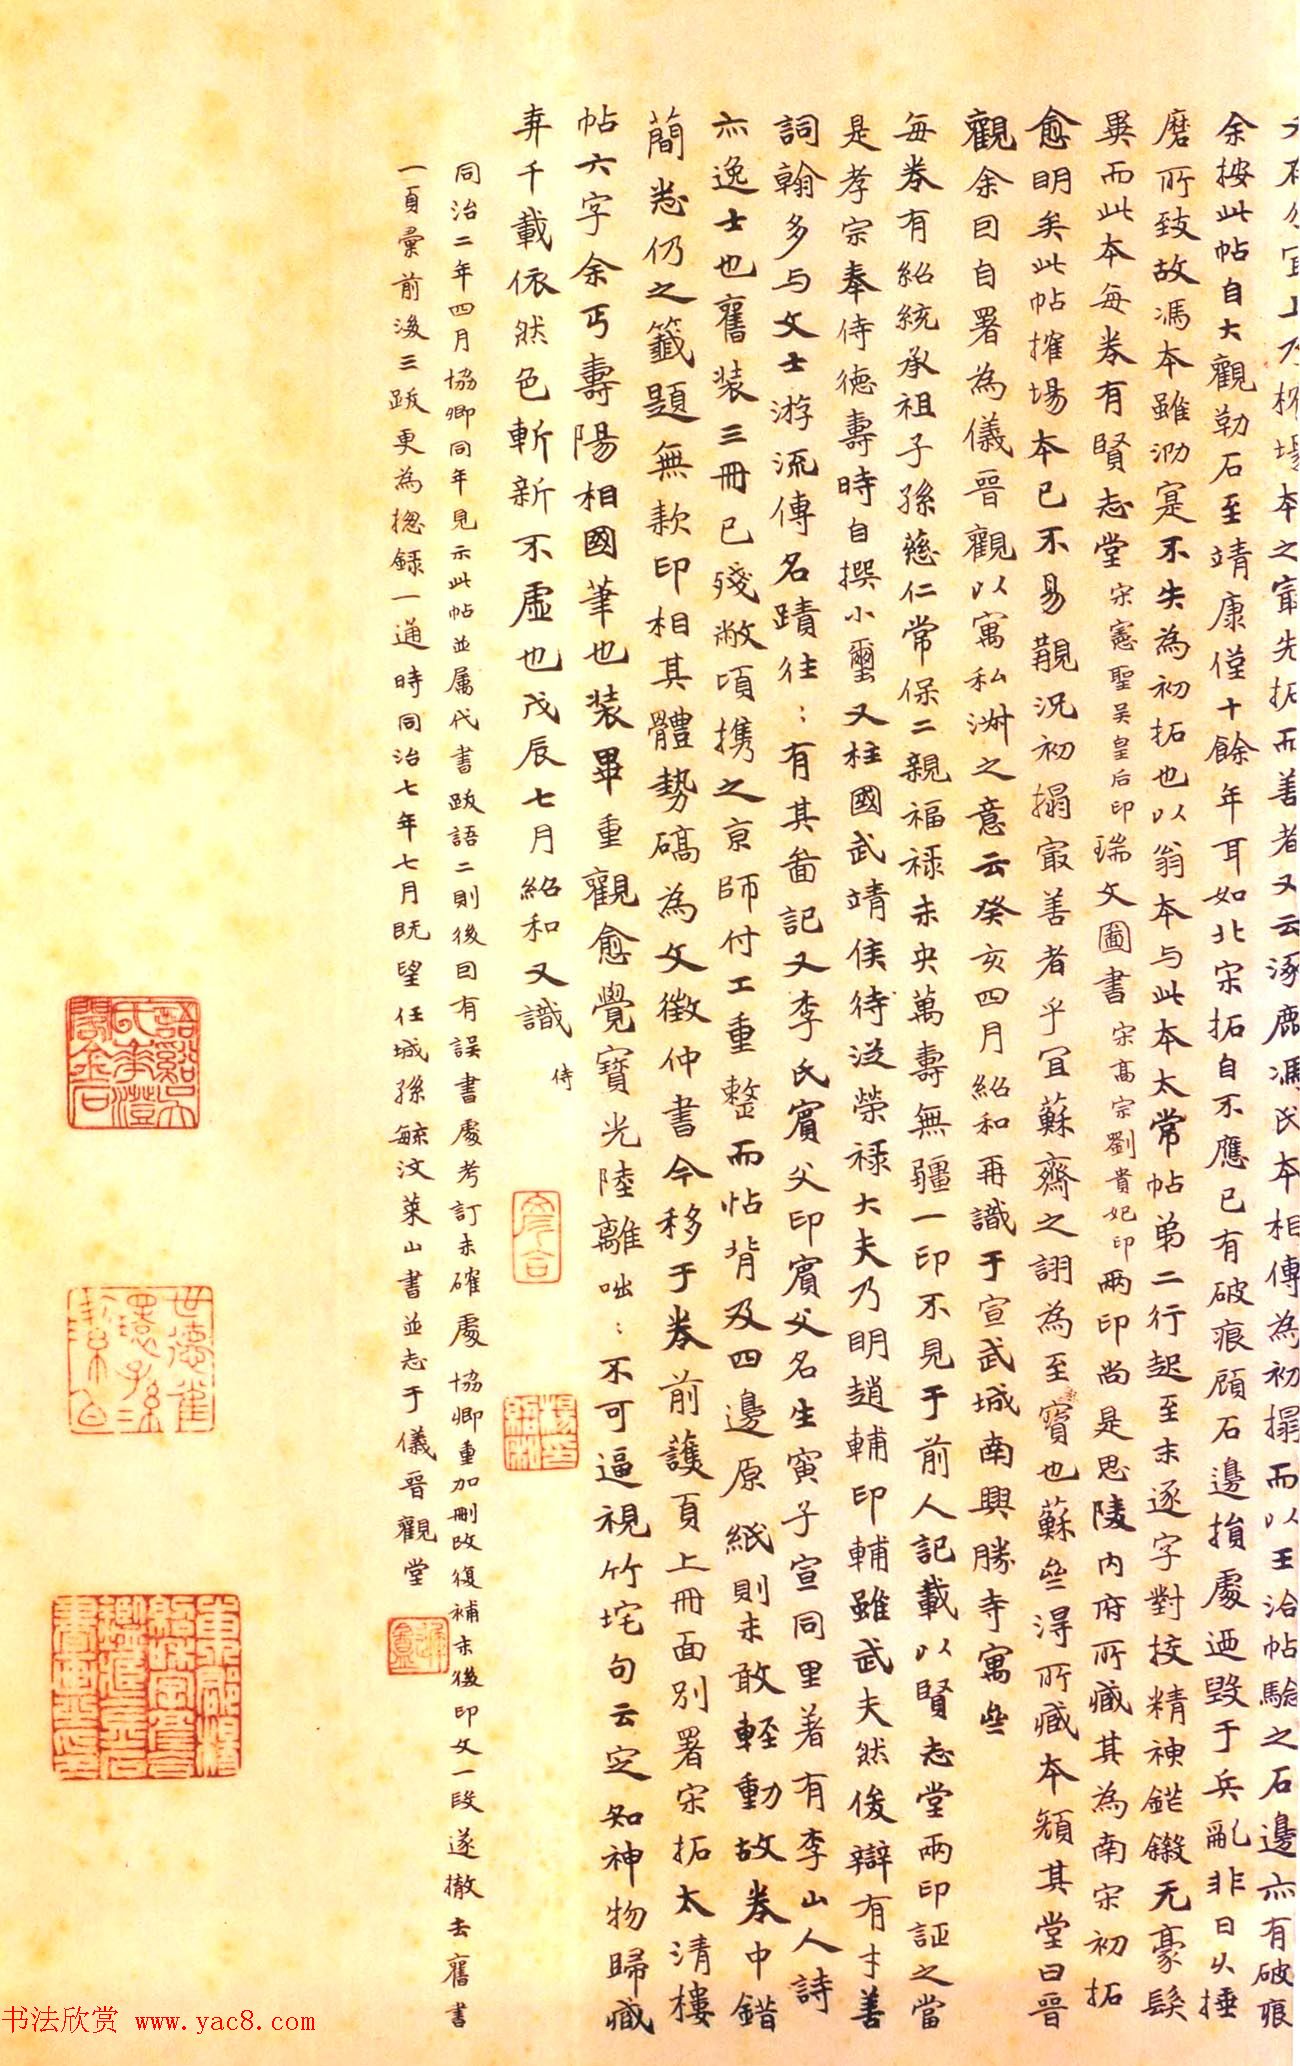 本之寂先拓而善者又云涿鹿馮氏本相傳為初搨而以王洽帖驗之石邊亦有破痕
余按此帖自大觀勒石至靖康僅十餘年耳如北宋拓自不應已有破痕顧石邊損處迺毀于兵亂非日久捶
磨所致故馮本雖泐寔不失為初拓也以翁本与此本太常帖弟二行起至末逐字對挍精神鋩鎩无豪髮
異而此本每券有賢志堂宋憲聖吴皇后印瑞文圖書宋高宗劉貴妃印兩印尚是思陵内府所藏其為南宋初拓
愈明矣此帖搉場本已不易覯況初搨寂善者乎冝蘇齋之詡為至寶也蘇叄淂所藏本頟其堂曰晉
觀余囙自署為儀晉觀以寓私淑之意云癸亥四月紹和再識于宣武城南興勝寺寓叄
每券有紹統承祖子孫慈仁常保二親福禄未央萬壽無疆一印不見于前人記載以賢志堂兩印証之當
是孝宗奉侍德壽時自撰小璽又柱國武靖侯待溰榮禄大夫乃明趙輔印輔雖武夫然俊辯有才善
詞翰多与文士游流傳名蹟往：有其啚記又李氏賓父印賓父名生寅子宣同里著有李山人詩
亦逸士也舊装三冊已殘敝頃携之亰師付工重整而帖背及四邊原紙則未敢輕動故券中錯
蕳悉仍之籤題無款印相其體勢碻為文徵仲書今移于券前護頁上冊面别署宋拓太清樓
帖六字余丐壽陽相國筆也装畢重觀愈覺寶光陸離咄：不可逼視竹垞句云定知神物歸藏
弆千載依然色斬新不虛也戊辰七月紹和又識
侍
同治二年四月協卿同年見示此帖並属代書跋語二則後囙有誤書處考訂未確處協卿重加刪改復補末後印文一段遂撤去舊書
一頁彚前後三跋更為揔録一通時同治七年七月既望任城孫毓汶萊山書並志于儀晉觀堂
彥合
楊紹和
世德雀環子孫
東郡楊紹和字彥合
书法欣赏 www.yac8.com